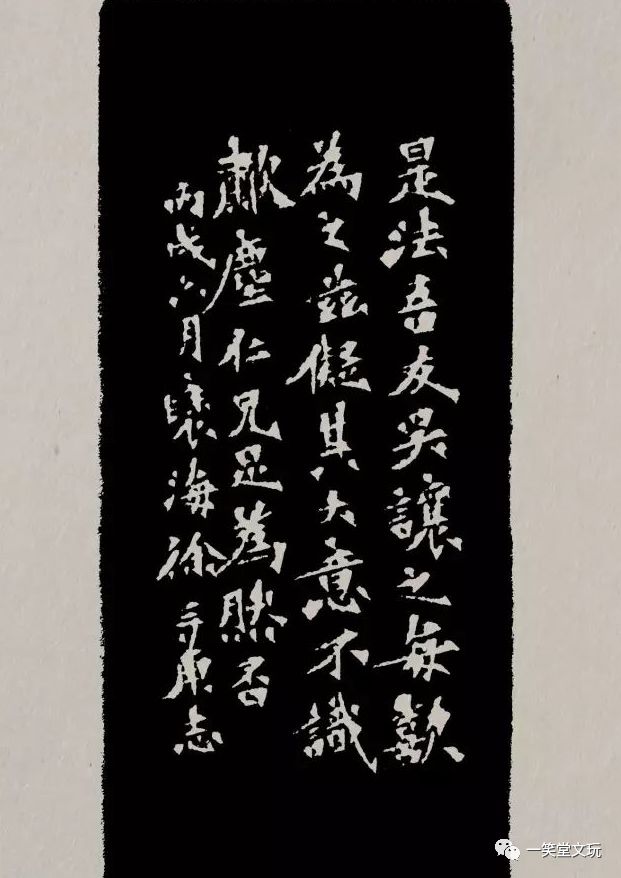 是法吾友吳讓之每歡
為之茲儗其大意不識
歗塵仁兄足為然否
丙戌六月褎海徐三庚志
一笑堂文玩